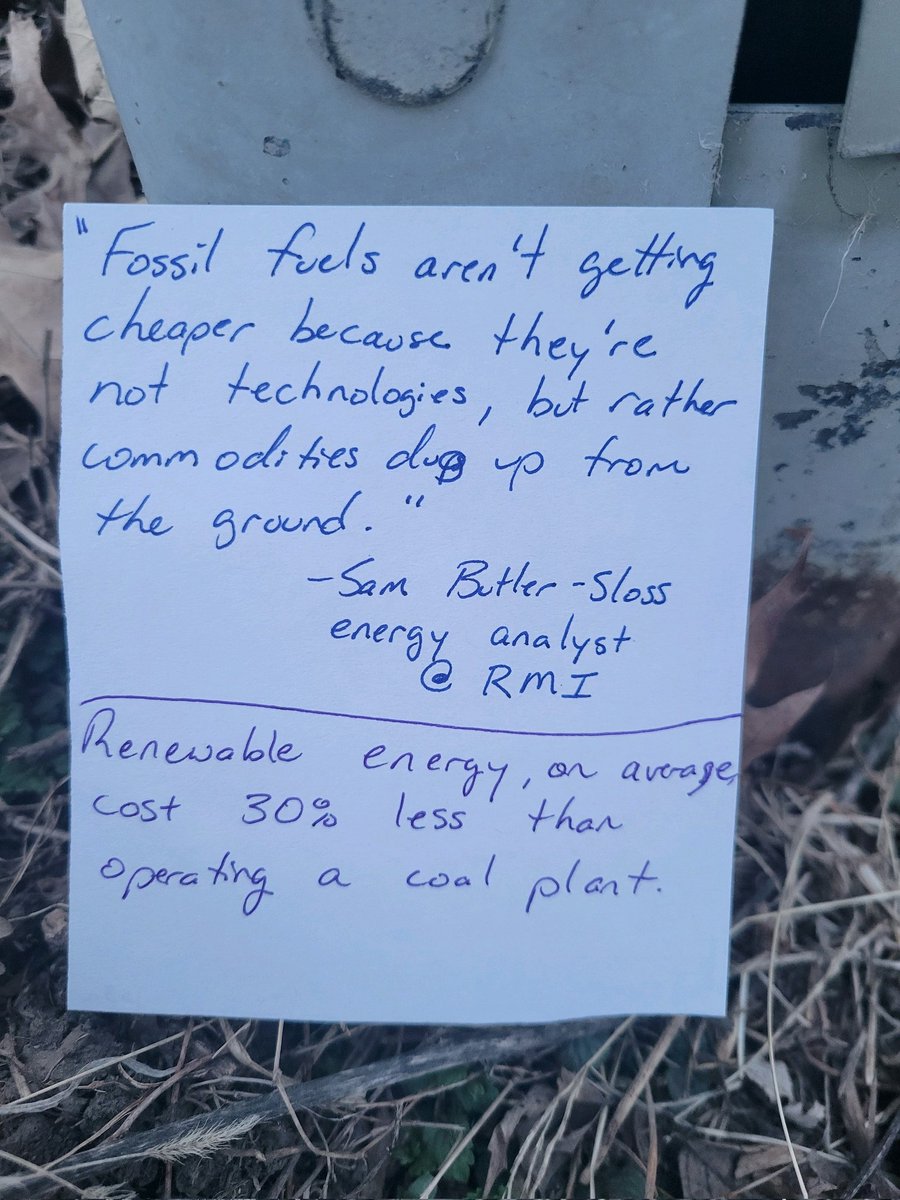 "Fossil fuels aren't getting
cheaper because they're
not technologies, but rather
commodities dug up from
the ground."
-Sam Butler-Sloss
energy analyst
@ RMI
Renewable energy, on average,
cost 30% less than
operating a coal plant.